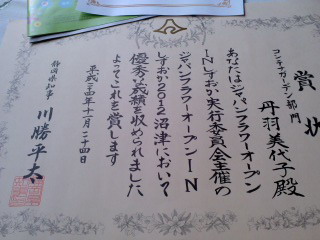 賞状
コンテナガーデン部門
丹羽美代子殿
あなたはジャパンフラワーオープン
INしずおか実行委員会主催の
ジャパンフラワーオープンIN
しずおか2012沼津において
優秀な成績を収められました
よってこれを賞します
平成二十四年十一月二十四日
静岡県知事 川勝平太